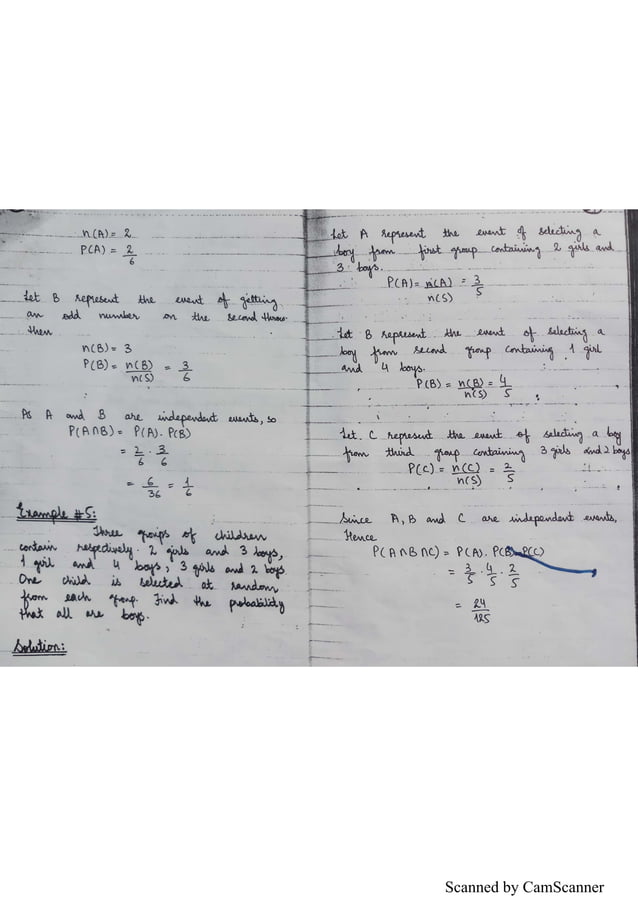 n(A) = 2
P(A) = 2/6
Let B represent the event of getting
an odd number on the second throw
then
n(B) = 3
P(B) = n(B)/n(S) = 3/6
As A and B are independent events, so
P(A∩B) = P(A). P(B)
= 2/6 . 3/6
= 6/36 = 1/6
Example #5:
Three groups of children
contain respectively 2 girls and 3 boys,
1 girl and 4 boys, 3 girls and 2 boys
One child is selected at random
from each group. Find the probability
that all are boys.
Solution:
Let A represent the event of selecting a
boy from first group containing 2 girls and
3 boys.
P(A) = n(A)/n(S) = 3/5
Let B represent the event of selecting a
boy from second group containing 1 girl
and 4 boys.
P(B) = n(B)/n(S) = 4/5
Let C represent the event of selecting a boy
from third group containing 3 girls and 2 boys
P(C) = n(C)/n(S) = 2/5
Since A, B and C are independent events,
Hence
P(A∩B∩C) = P(A). P(B). P(C)
= 3/5 . 4/5 . 2/5
= 24/125
Scanned by CamScanner